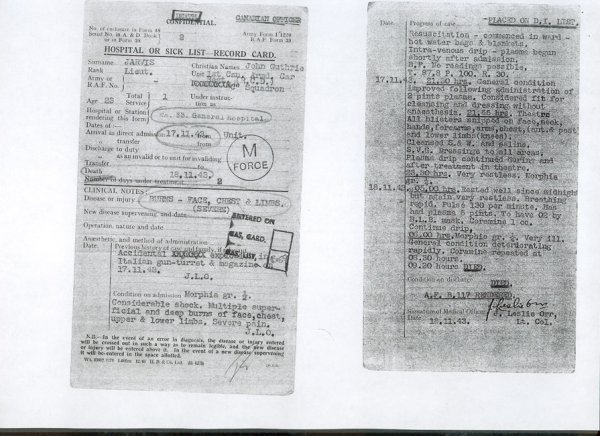 DEATH
CONFIDENTIAL.
CANADIAN OFFICER
No. of enclosure in Form 48
Serial No. in A. & D. Book
or in Form 39
2
Army Form I.1220
R.A.F. Form 39
HOSPITAL OR SICK LIST—RECORD CARD.
Surname JARVIS
Christian Names John Guthrie
Rank Lieut.
Unit 1st Can. Armd. Car
Army or
R.A.F. No.
Squadron
Age 23 Total Service 1
Under instruction
Hospital or Station rendering this form No. 33 General Hospital
Dates of :—
Arrival in direct admission 17.11.43. from Unit.
„ transfer from
Discharge to duty
„ as an invalid or to unit for invaliding
Transfer to
Death 18.11.43.
Number of days under treatment 2
M
FORCE
CLINICAL NOTES:
Disease or injury BURNS - FACE, CHEST & LIMBS.
(SEVERE)
New disease supervening and date
Operation, nature and date
ENTERED ON
Anæsthetic, and method of administration
Date. Previous history of case and family, if
Accidental XXXXXXX explosion in
Italian gun-turret & magazine on
17.11.43.
J.L.O.
Condition on admission Morphia gr. ½
Considerable shock. Multiple super-
ficial and deep burns of face, chest,
upper & lower limbs. Severe pain.
J.L.O.
N.B.—In the event of an error in diagnosis, the disease or injury entered
will be crossed out in such a way as to remain legible, and the new disease
or injury will be entered above it. In the event of a new disease supervening
it will be entered in the space allotted.
Date. Progress of case. PLACED ON D.I. LIST.
Resuscitation - commenced in ward -
hot water bags & blankets.
Intra-venous drip - plasma begun
shortly after admission.
B.P. No readings possible.
T. 97.8 P. 100. R. 30.
17.11.43. 21.30 hrs. General condition
improved following administration of
2 pints plasma. Considered fit for
cleansing and dressing without
anaesthesia. 21.55 hrs. Theatre
All blisters snipped on face, neck,
hands, forearms, arms, chest, (ant. & post)
and lower limbs (knees)
Cleansed S. & W. and saline.
S.V.G. Dressings to all areas.
Plasma drip continued during and
after treatment in theatre.
23.30 hrs. Very restless. Morphia
gr. ¼
18.11.43. 05.00 hrs. Rested well since midnight
but again very restless. Breathing
rapid. Pulse 130 per minute. Has
had plasma 5 pints. To have O2 by
B.L.B. mask. Coramine 1 cc.
Continue drip.
08.00 hrs. Morphia gr. ¼. Very ill.
General condition deteriorating
rapidly. Coramine repeated at
08.30 hours.
09.20 hours DIED.
Condition on discharge
DIED.
A.F. B.117 RENDERED.
Signature of Medical Officer J. Leslie Orr.
Date 18.11.43. Lt. Col.